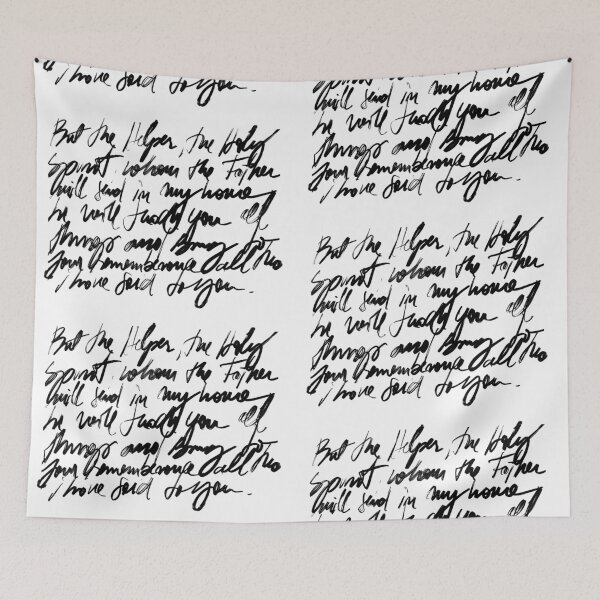 I have said to you.
But the Helper, the Holy
Spirit. whom the Father
will send in my name
he will teach you all
things and Bring to
your remembrance all that
I have said to you.
But the Helper, the Holy
Spirit. whom the Father
will send in my name
he will teach you all
things and Bring to
your remembrance all that
I have said to you.
will send in my name
he will teach you all
things and Bring to
your remembrance all that
I have said to you.
But the Helper, the Holy
Spirit. whom the Father
will send in my name
he will teach you all
things and Bring to
your remembrance all that
I have said to you.
But the Helper, the Holy
Spirit. whom the Father
will send in my name